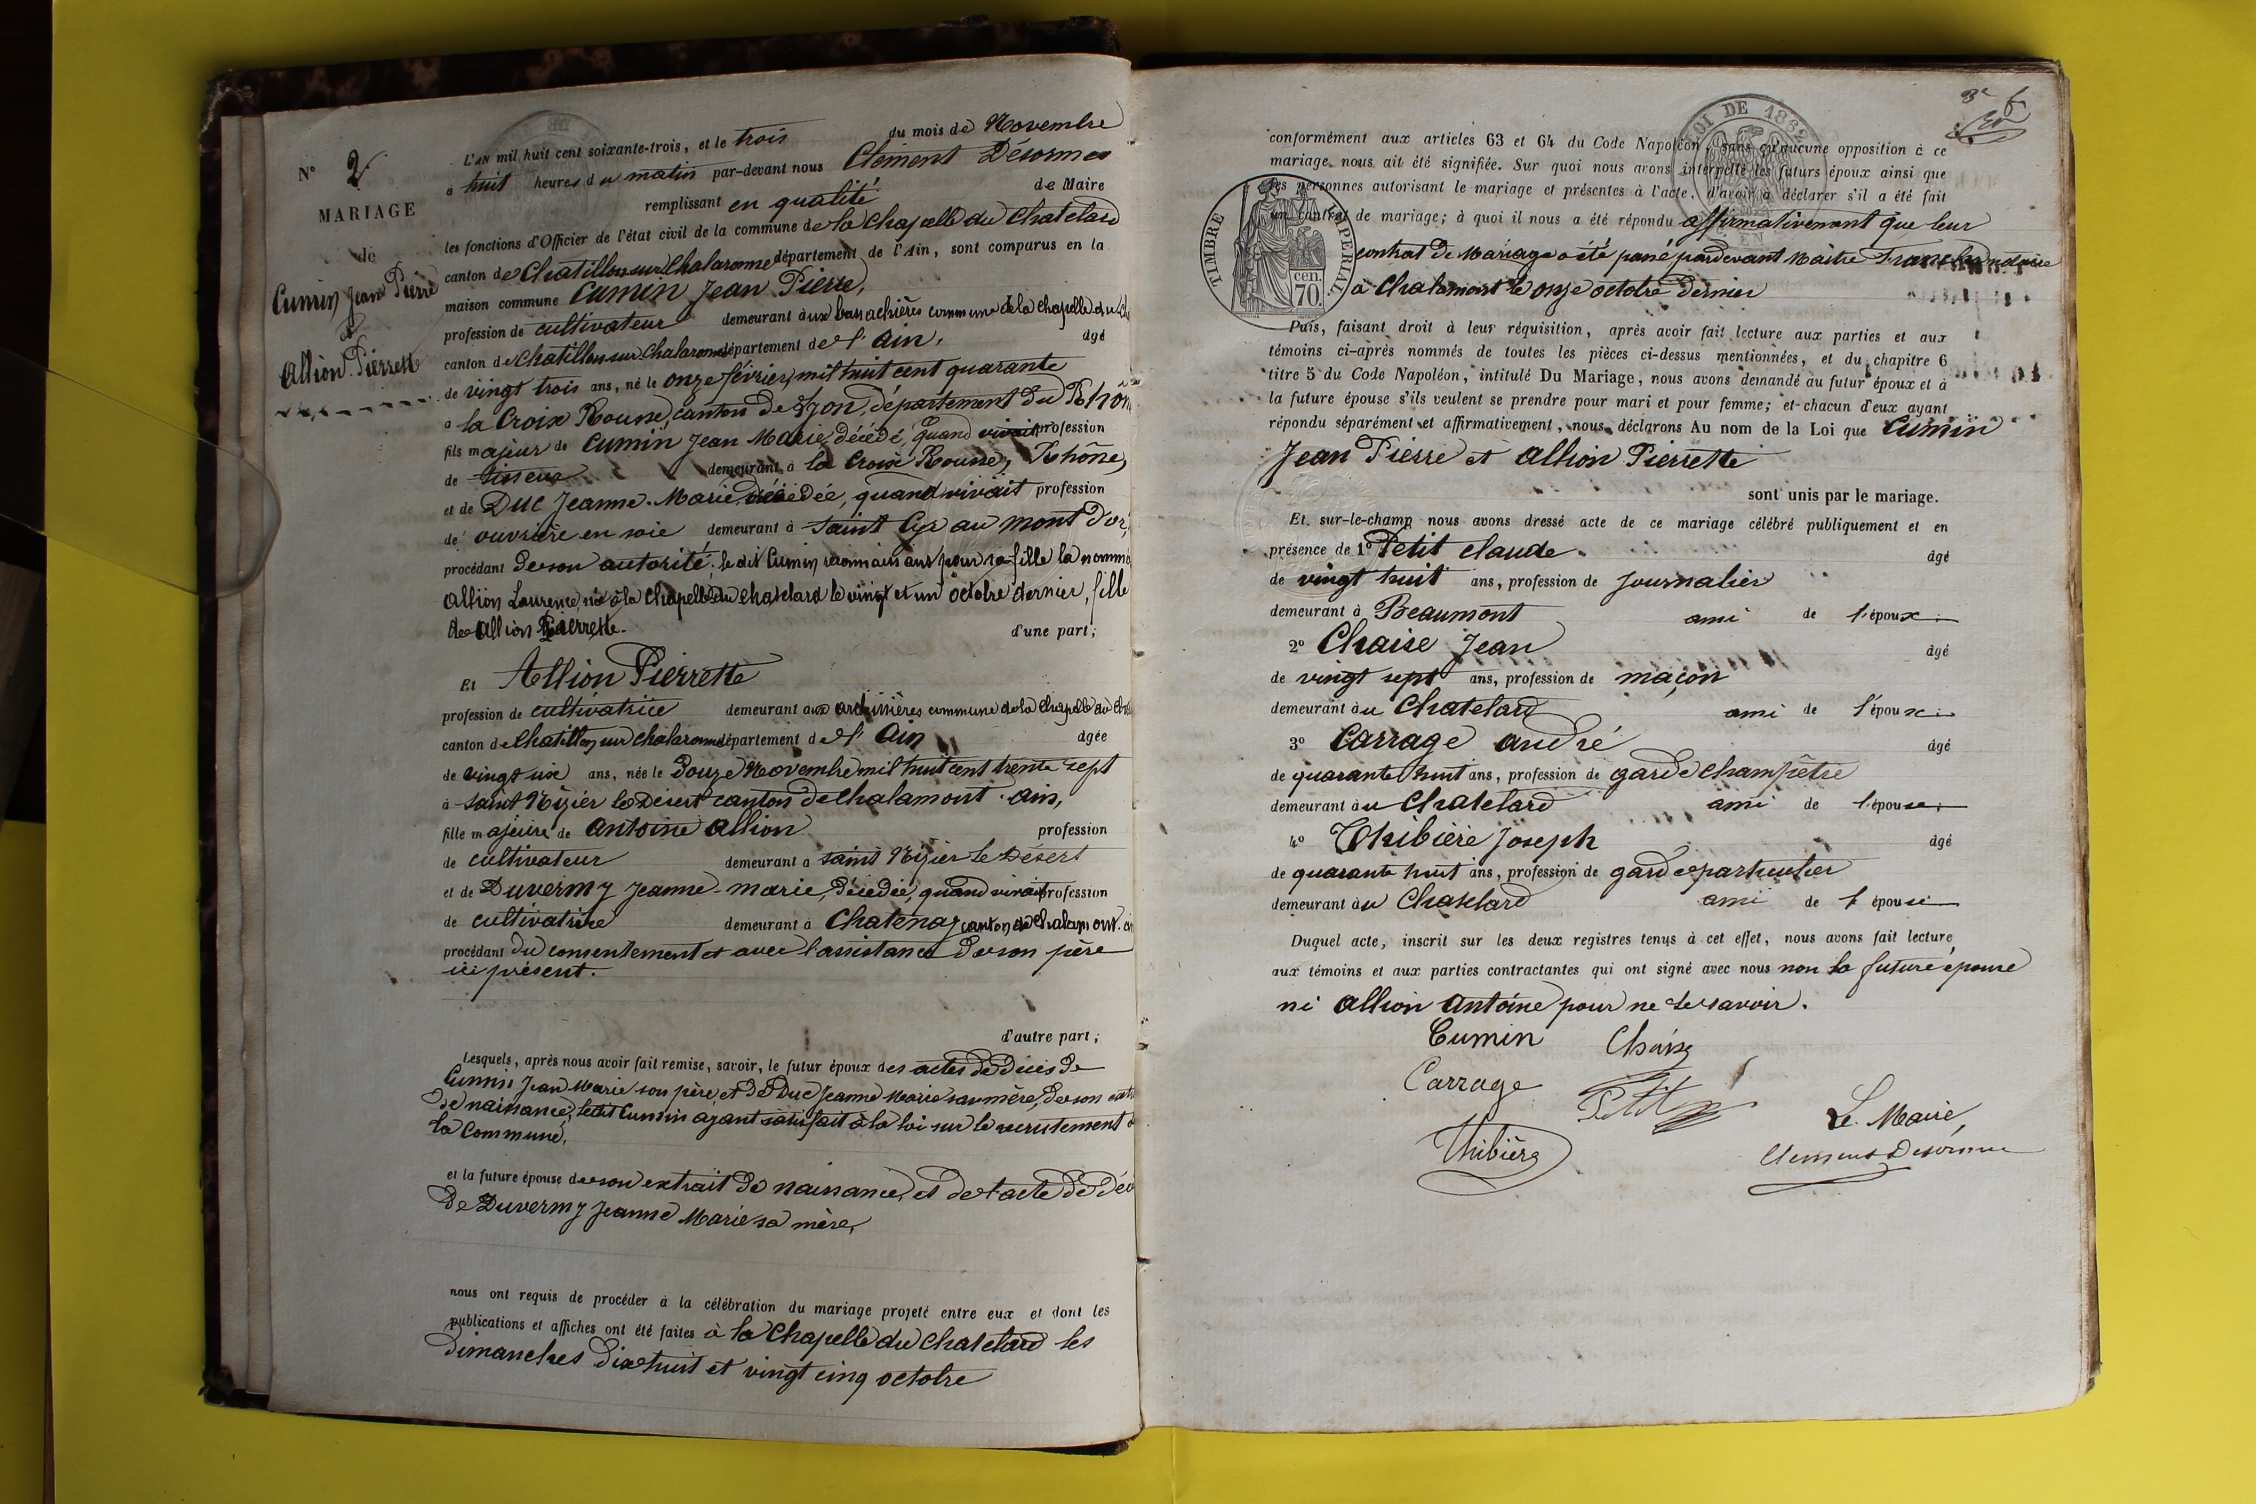 N° 2
MARIAGE
de
Cumin Jean Pierre
et
Allion Pierrette
L'AN mil huit cent soixante-trois, et le trois du mois de Novembre
à huit heures du matin par-devant nous Clément Désormes
remplissant en qualité de Maire
les fonctions d'Officier de l'état civil de la commune de la Chapelle du Chatelard
canton de Chatillon sur Chalaronne département de l'Ain, sont comparus en la
maison commune Cumin Jean Pierre,
profession de cultivateur demeurant aux commune de la Chapelle du
canton de Chatillon sur Chalaronne département de l'Ain, âgé
de vingt trois ans, né le onze février mil huit cent quarante
à la Croix Rousse, canton de Lyon, département du Rhône
fils majeur de Cumin Jean Marie, décédé, quand vivait profession
de tisseur demeurant à la Croix Rousse, Rhône,
et de Duc Jeanne-Marie, décédée, quand vivait profession
de ouvrière en soie demeurant à Saint Cyr au Mont d'or,
procédant de son autorité. le dit Cumin reconnaissant pour sa fille la nommé
Allion Laurence, née à la Chapelle du Chatelard le vingt et un octobre dernier, fille
de Allion Pierrette. d'une part;
Et Allion Pierrette
profession de cultivatrice demeurant aux commune de la Chapelle du
canton de Chatillon sur Chalaronne département de l'Ain âgée
de vingt six ans, née le douze Novembre mil huit cent trente sept
à Saint Nizier le Désert canton de Chalamont. Ain,
fille majeure de Antoine Allion profession
de cultivateur demeurant à Saint Nizier le Désert
et de Duvermy Jeanne-Marie, décédée, quand vivait profession
de cultivatrice demeurant à Chatenay canton de Chalamont.
procédant du consentement et avec l'assistance de son père
ici présent.
d'autre part;
Lesquels, après nous avoir fait remise, savoir, le futur époux des actes de décès de
Cumin Jean Marie son père, et de Duc Jeanne Marie sa mère, de son
de naissance, ledit Cumin ayant satisfait à la loi sur le recrutement
la Commune,
et la future épouse de son extrait de naissance, et de l'acte de
de Duvermy Jeanne Marie sa mère,
nous ont requis de procéder à la célébration du mariage projeté entre eux et dont les
publications et affiches ont été faites à la Chapelle du Chatelard les
dimanches dix huit et vingt cinq octobre
LOI DE 1862
TIMBRE IMPERIAL
70 cen.
conformément aux articles 63 et 64 du Code Napoléon, sans qu'aucune opposition à ce
mariage nous ait été signifiée. Sur quoi nous avons interpellé les futurs époux ainsi que
les personnes autorisant le mariage et présentes à l'acte, d'avoir à déclarer s'il a été fait
un contrat de mariage; à quoi il nous a été répondu affirmativement que leur
contrat de Mariage a été passé pardevant Maître notaire
à Chalamont le onze octobre dernier
Puis, faisant droit à leur réquisition, après avoir fait lecture aux parties et aux
témoins ci-après nommés de toutes les pièces ci-dessus mentionnées, et du chapitre 6
titre 5 du Code Napoléon, intitulé Du Mariage, nous avons demandé au futur époux et à
la future épouse s'ils veulent se prendre pour mari et pour femme; et chacun d'eux ayant
répondu séparément et affirmativement, nous déclarons Au nom de la Loi que Cumin
Jean Pierre et Allion Pierrette
sont unis par le mariage.
Et sur-le-champ nous avons dressé acte de ce mariage célébré publiquement et en
présence de 1° Petit Claude. âgé
de vingt huit ans, profession de journalier
demeurant à Beaumont ami de l'époux.
2° Chaise Jean âgé
de vingt sept ans, profession de maçon
demeurant au Chatelard ami de l'époux.
3° Carrage andré âgé
de quarante huit ans, profession de garde champêtre
demeurant au Chatelard ami de l'épouse.
4° Thibière Joseph âgé
de quarante huit ans, profession de garde particulier
demeurant au Chatelard ami de l'épouse
Duquel acte, inscrit sur les deux registres tenus à cet effet, nous avons fait lecture
aux témoins et aux parties contractantes qui ont signé avec nous non la future épouse
ni Allion Antoine pour ne le savoir.
Cumin Chaise
Carrage Petit
Le Maire,
Thibière Clement Désormes